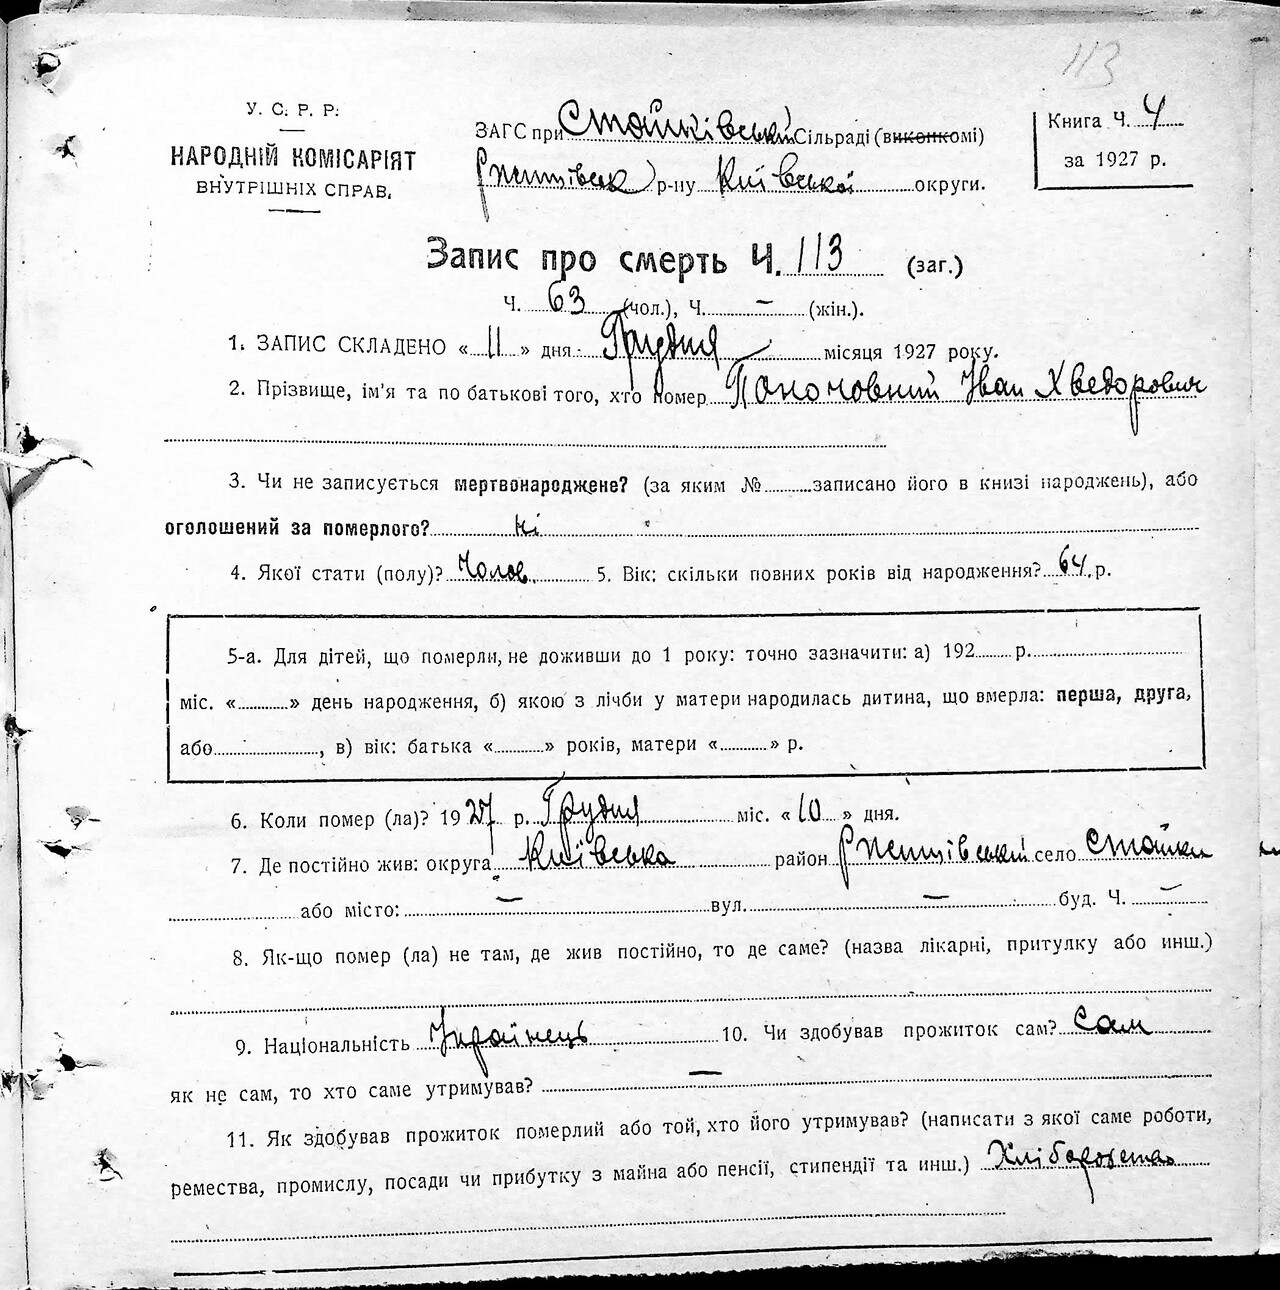 113
У. С. Р. Р.
НАРОДНІЙ КОМІСАРІЯТ
ВНУТРІШНІХ СПРАВ.
ЗАГС при Стайківській Сільраді (виконкомі)
Ржищівськ р-ну Київської округи.
Книга Ч. 4
за 1927 р.
Запис про смерть Ч. 113 (заг.)
Ч. 63 (чол.), Ч. — (жін.).
1. ЗАПИС СКЛАДЕНО « 11 » дня Грудня місяця 1927 року.
2. Прізвище, ім'я та по батькові того, хто помер Іван Хведорович
3. Чи не записується мертвонароджене? (за яким № записано його в книзі народжень), або
оголошений за померлого? ні
4. Якої стати (полу)? Чолов. 5. Вік: скільки повних років від народження? 64 р.
5-а. Для дітей, що померли, не доживши до 1 року: точно зазначити: а) 192 р.
міс. « » день народження, б) якою з лічби у матери народилась дитина, що вмерла: перша, друга,
або , в) вік: батька « » років, матери « » р.
6. Коли помер (ла)? 1927 р. Грудня міс. « 10 » дня.
7. Де постійно жив: округа Київська район Ржищівський село Стайки
або місто: — вул. — буд. Ч. —
8. Як-що помер (ла) не там, де жив постійно, то де саме? (назва лікарні, притулку або инш.)
9. Національність Українець 10. Чи здобував прожиток сам? Сам
як не сам, то хто саме утримував? —
11. Як здобував прожиток померлий або той, хто його утримував? (написати з якої саме роботи,
ремества, промислу, посади чи прибутку з майна або пенсії, стипендії та инш.) Хліборобство